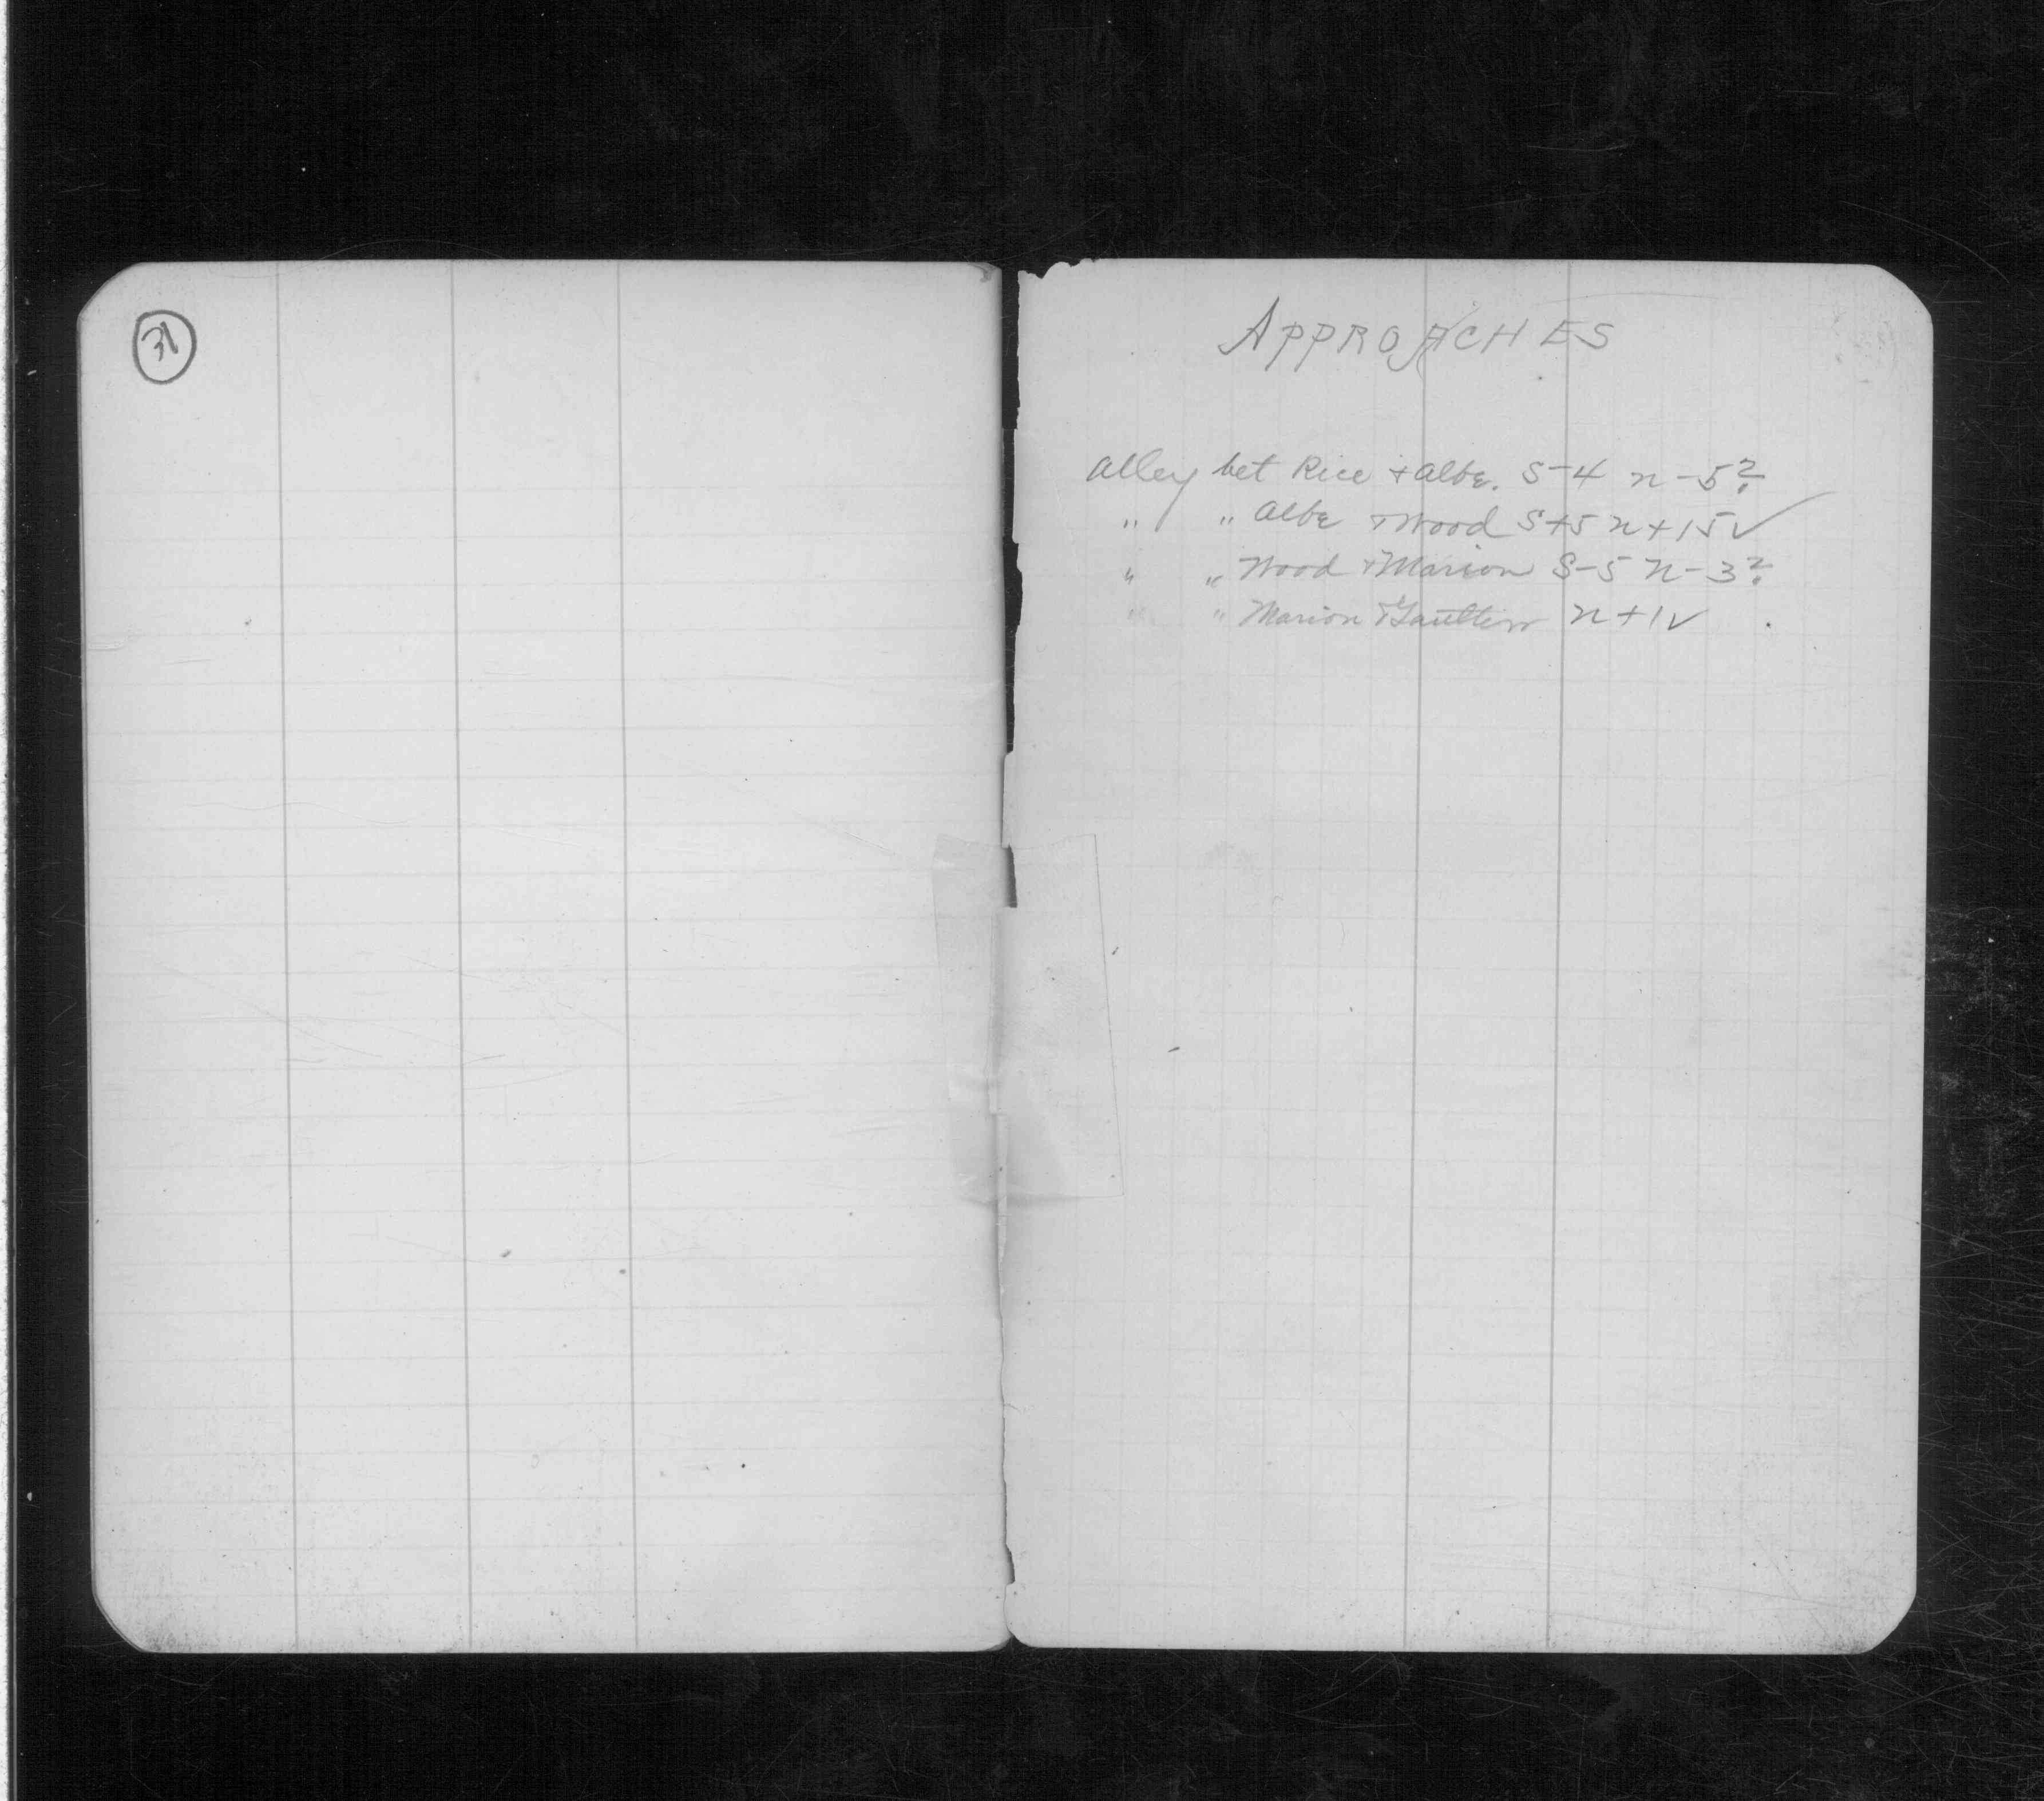 31
APPROACHES
Alley bet Rice + Albe. S-4 n-5?
" " Albe + Wood S+5 n+15✓
" " Wood + Marion S-5 n-3?
" " Marion + Gaultier n+1✓